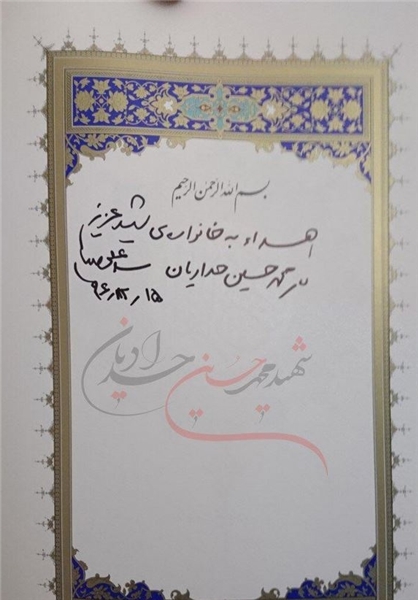 بسم الله الرحمن الرحیم
اهداء به خانواده‌ی شهید عزیز
محمد حسین حدادیان
۹۶٫۱۲٫۱۵
شهید محمد حسین حدادیان